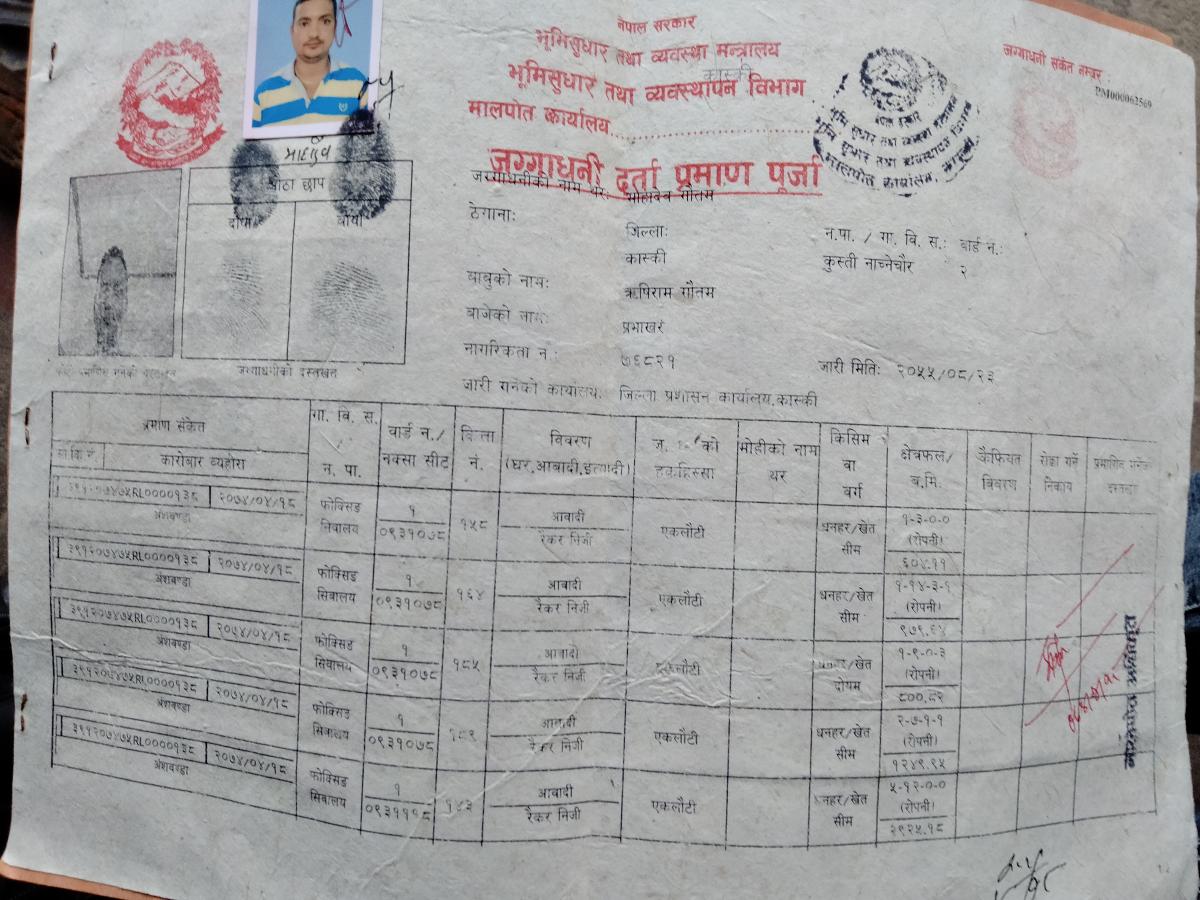 नेपाल सरकार
भूमिसुधार तथा व्यवस्था मन्त्रालय
भूमिसुधार तथा व्यवस्थापन विभाग
कास्की
मालपोत कार्यालय
जग्गाधनी दर्ता प्रमाण पूर्जा
जग्गाधनी संकेत नम्बर :
PM000062569
जग्गाधनीको नाम थर: महादेव गौतम
ठेगाना: जिल्ला: न.पा. / गा. वि. स.: वार्ड नं.:
कास्की कुस्ती नाच्नेचौर २
बाबुको नाम: ऋषिराम गौतम
बाजेको नाम: प्रभाखर
नागरिकता नं.: ७६८२१ जारी मिति: २०५५/०८/२३
जारी गर्नेको कार्यालय: जिल्ला प्रशासन कार्यालय,कास्की
औंठा छाप
दायाँ बायाँ
जग्गाधनीको दस्तखत
प्रमाण संकेत गा. वि. स. न. पा. वार्ड नं./ नक्सा सीट कित्ता नं. विवरण (घर,आबादी,इत्यादी) हकहिस्सा मोहीको नाम थर किसिम वा वर्ग क्षेत्रफल/ ब.मि. कैफियत विवरण रोक्का गर्ने निकाय
कारोबार व्यहोरा
३९१२०७४७५RL0000१३८ २०७४/०४/१८ अंशबण्डा फोक्सिङ सिवालय १ ०९३१०७८ १५८ आबादी रैकर निजी एकलौटी धनहर/खेत सीम १-३-०-० (रोपनी) ६०४.११
३९१२०७४७५RL0000१३८ २०७४/०४/१८ अंशबण्डा फोक्सिङ सिवालय १ ०९३१०७८ १६४ आबादी रैकर निजी एकलौटी धनहर/खेत सीम १-१४-३-१ (रोपनी) ९७९.६४
३९१२०७४७५RL0000१३८ २०७४/०४/१८ अंशबण्डा फोक्सिङ सिवालय १ ०९३१०७८ १८५ आबादी रैकर निजी एकलौटी धनहर/खेत दोयम १-९-०-३ (रोपनी) ८००.८२
३९१२०७४७५RL0000१३८ २०७४/०४/१८ अंशबण्डा फोक्सिङ सिवालय १ ०९३१०७८ १८९ आबादी रैकर निजी एकलौटी धनहर/खेत सीम २-७-१-१ (रोपनी) १२४९.९५
३९१२०७४७५RL0000१३८ २०७४/०४/१८ अंशबण्डा फोक्सिङ सिवालय १ ०९३१११८ १४३ आबादी रैकर निजी एकलौटी धनहर/खेत सीम ५-१२-०-० (रोपनी) २९२५.१८